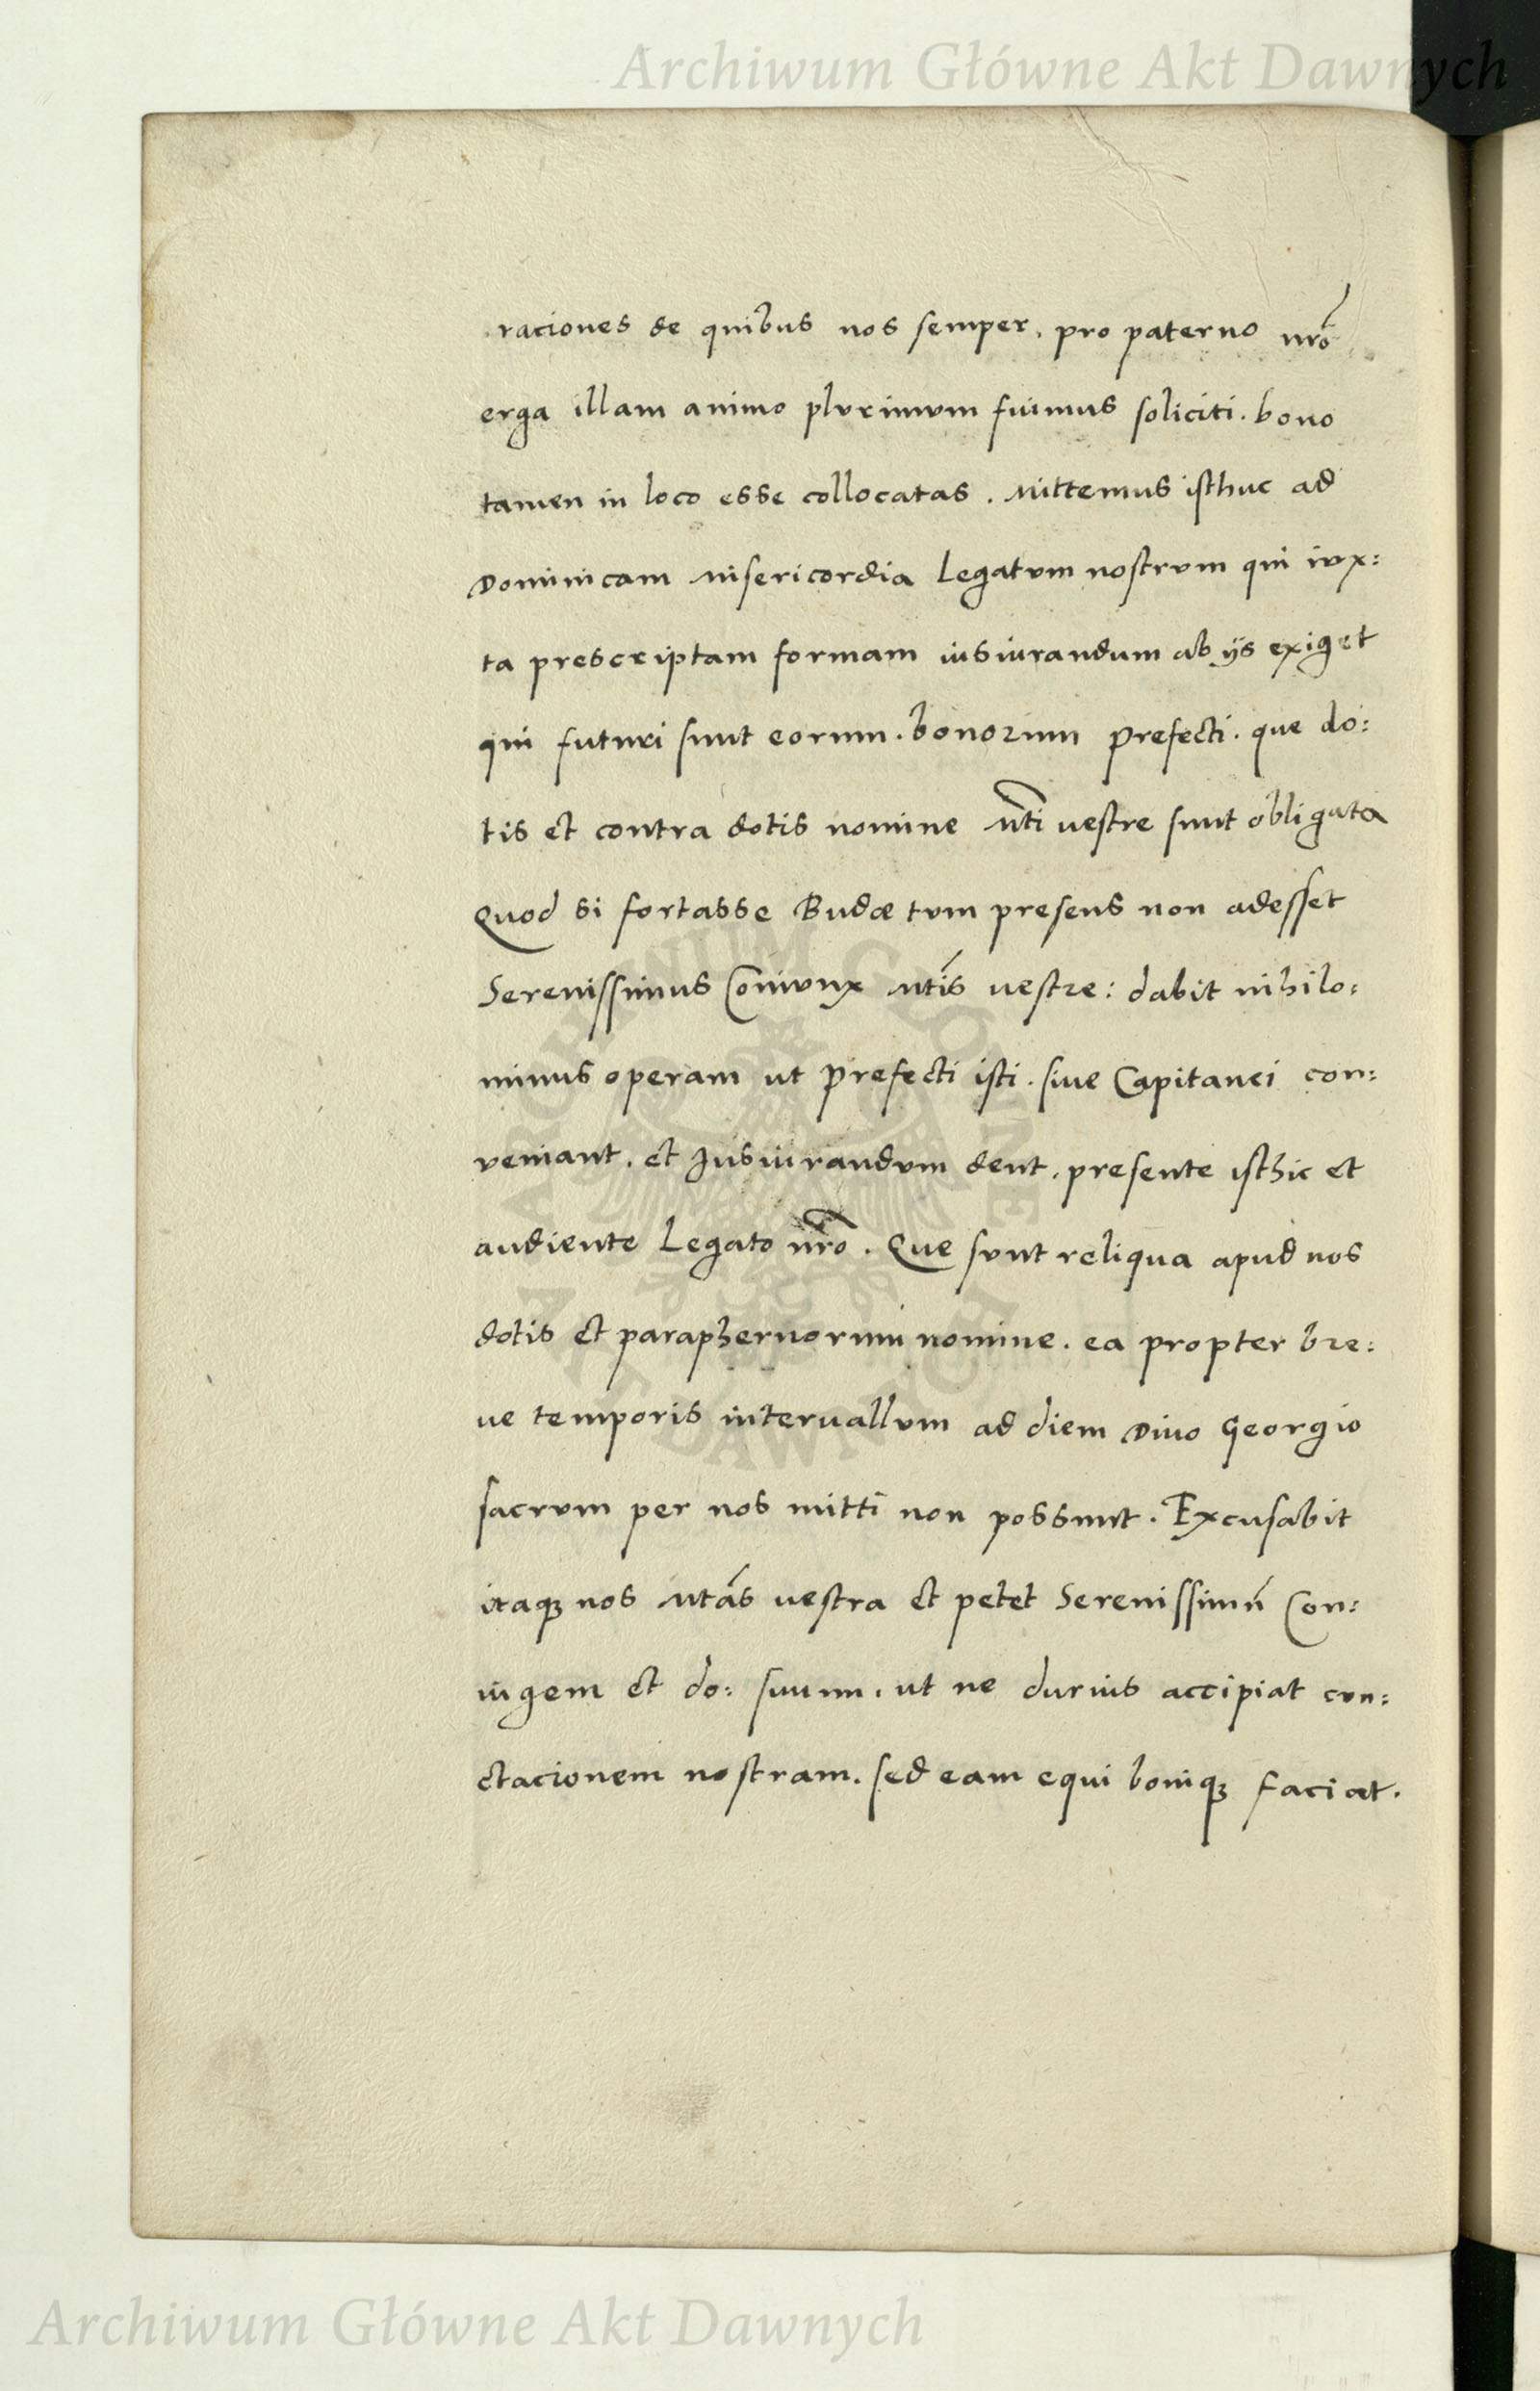 Archiwum Główne Akt Dawnych
raciones de quibus nos semper. pro paterno nrõ
erga illam animo plurimvm fuimus soliciti. bono
tamen in loco esse collocatas. Mittemus isthuc ad
Dominicam Misericordia Legatvm nostrvm qui ivx:
ta prescriptam formam iusiurandum ab ijs exiget
qui futuri sunt eorum. bonorum prefecti. que do:
tis et contra dotis nomine Mti vestre sunt obligata
Quod si fortasse Budæ tvm presens non adesset
Serenissimus Conivnx Mtis vestre: dabit nihilo:
minus operam ut prefecti isti. siue Capitanei con:
veniant. et Jusiurandvm dent. presente isthic et
audiente Legato nrõ. Que svnt reliqua apud nos
dotis et paraphernorum nomine. ea propter bre:
ue temporis interuallvm ad diem Diuo Georgio
sacrvm per nos mitti non possunt. Excusabit
itaqȝ nos Mtás uestra et petet Serenissimũ Con:
iugem et do: suum. ut ne durius accipiat cvn:
ctacionem nostram. sed eam equi boniqȝ faciat.
ARCHIWUM GŁÓWNE
AKT DAWNYCH
Archiwum Główne Akt Dawnych